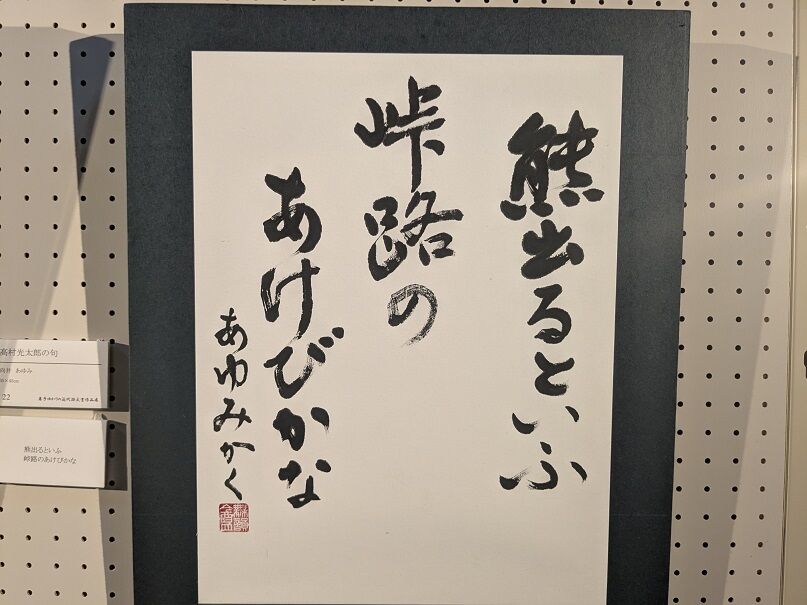 熊出るといふ
峠路の
あけびかな
あゆみかく
高村光太郎の句
向井 あゆみ
22
熊出るといふ
峠路のあけびかな